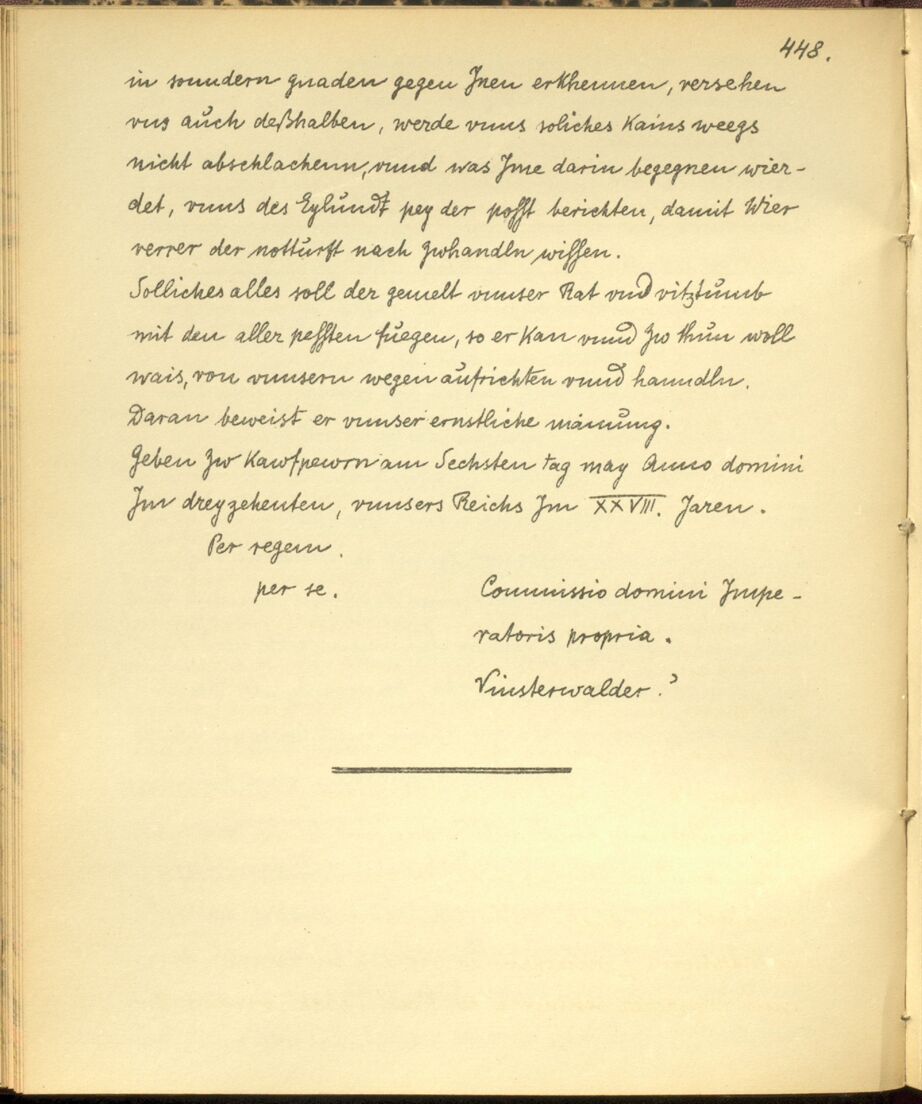 448.
in sonndern gnaden gegen Jnen erkhennen, versehen
vns auch deßhalben, werde vnns soliches kains weegs
nicht abschlachenn, vnnd was Jme darin begegnen wier-
det, vnns des Eylundt pey der posst berichten, damit Wier
verrer der notturft nach zwhandln wissen.
Solliches alles soll der gemelt vnnser Rat vnd vitztumb
mit den aller pessten fuegen, so er kan vnnd zw thun woll
wais, von vnnsern wegen aufrichten vnnd hanndln.
Daran beweist er vnnser ernstliche mainung.
Geben zw Kawfpewrn am Sechsten tag may Anno domini
Jm dreyzehenten, vnnsers Reichs Jm XXVIII. Jaren.
Per regem.
per se.
Commissio domini Jmpe-
ratoris propria.
Vinsterwalder.